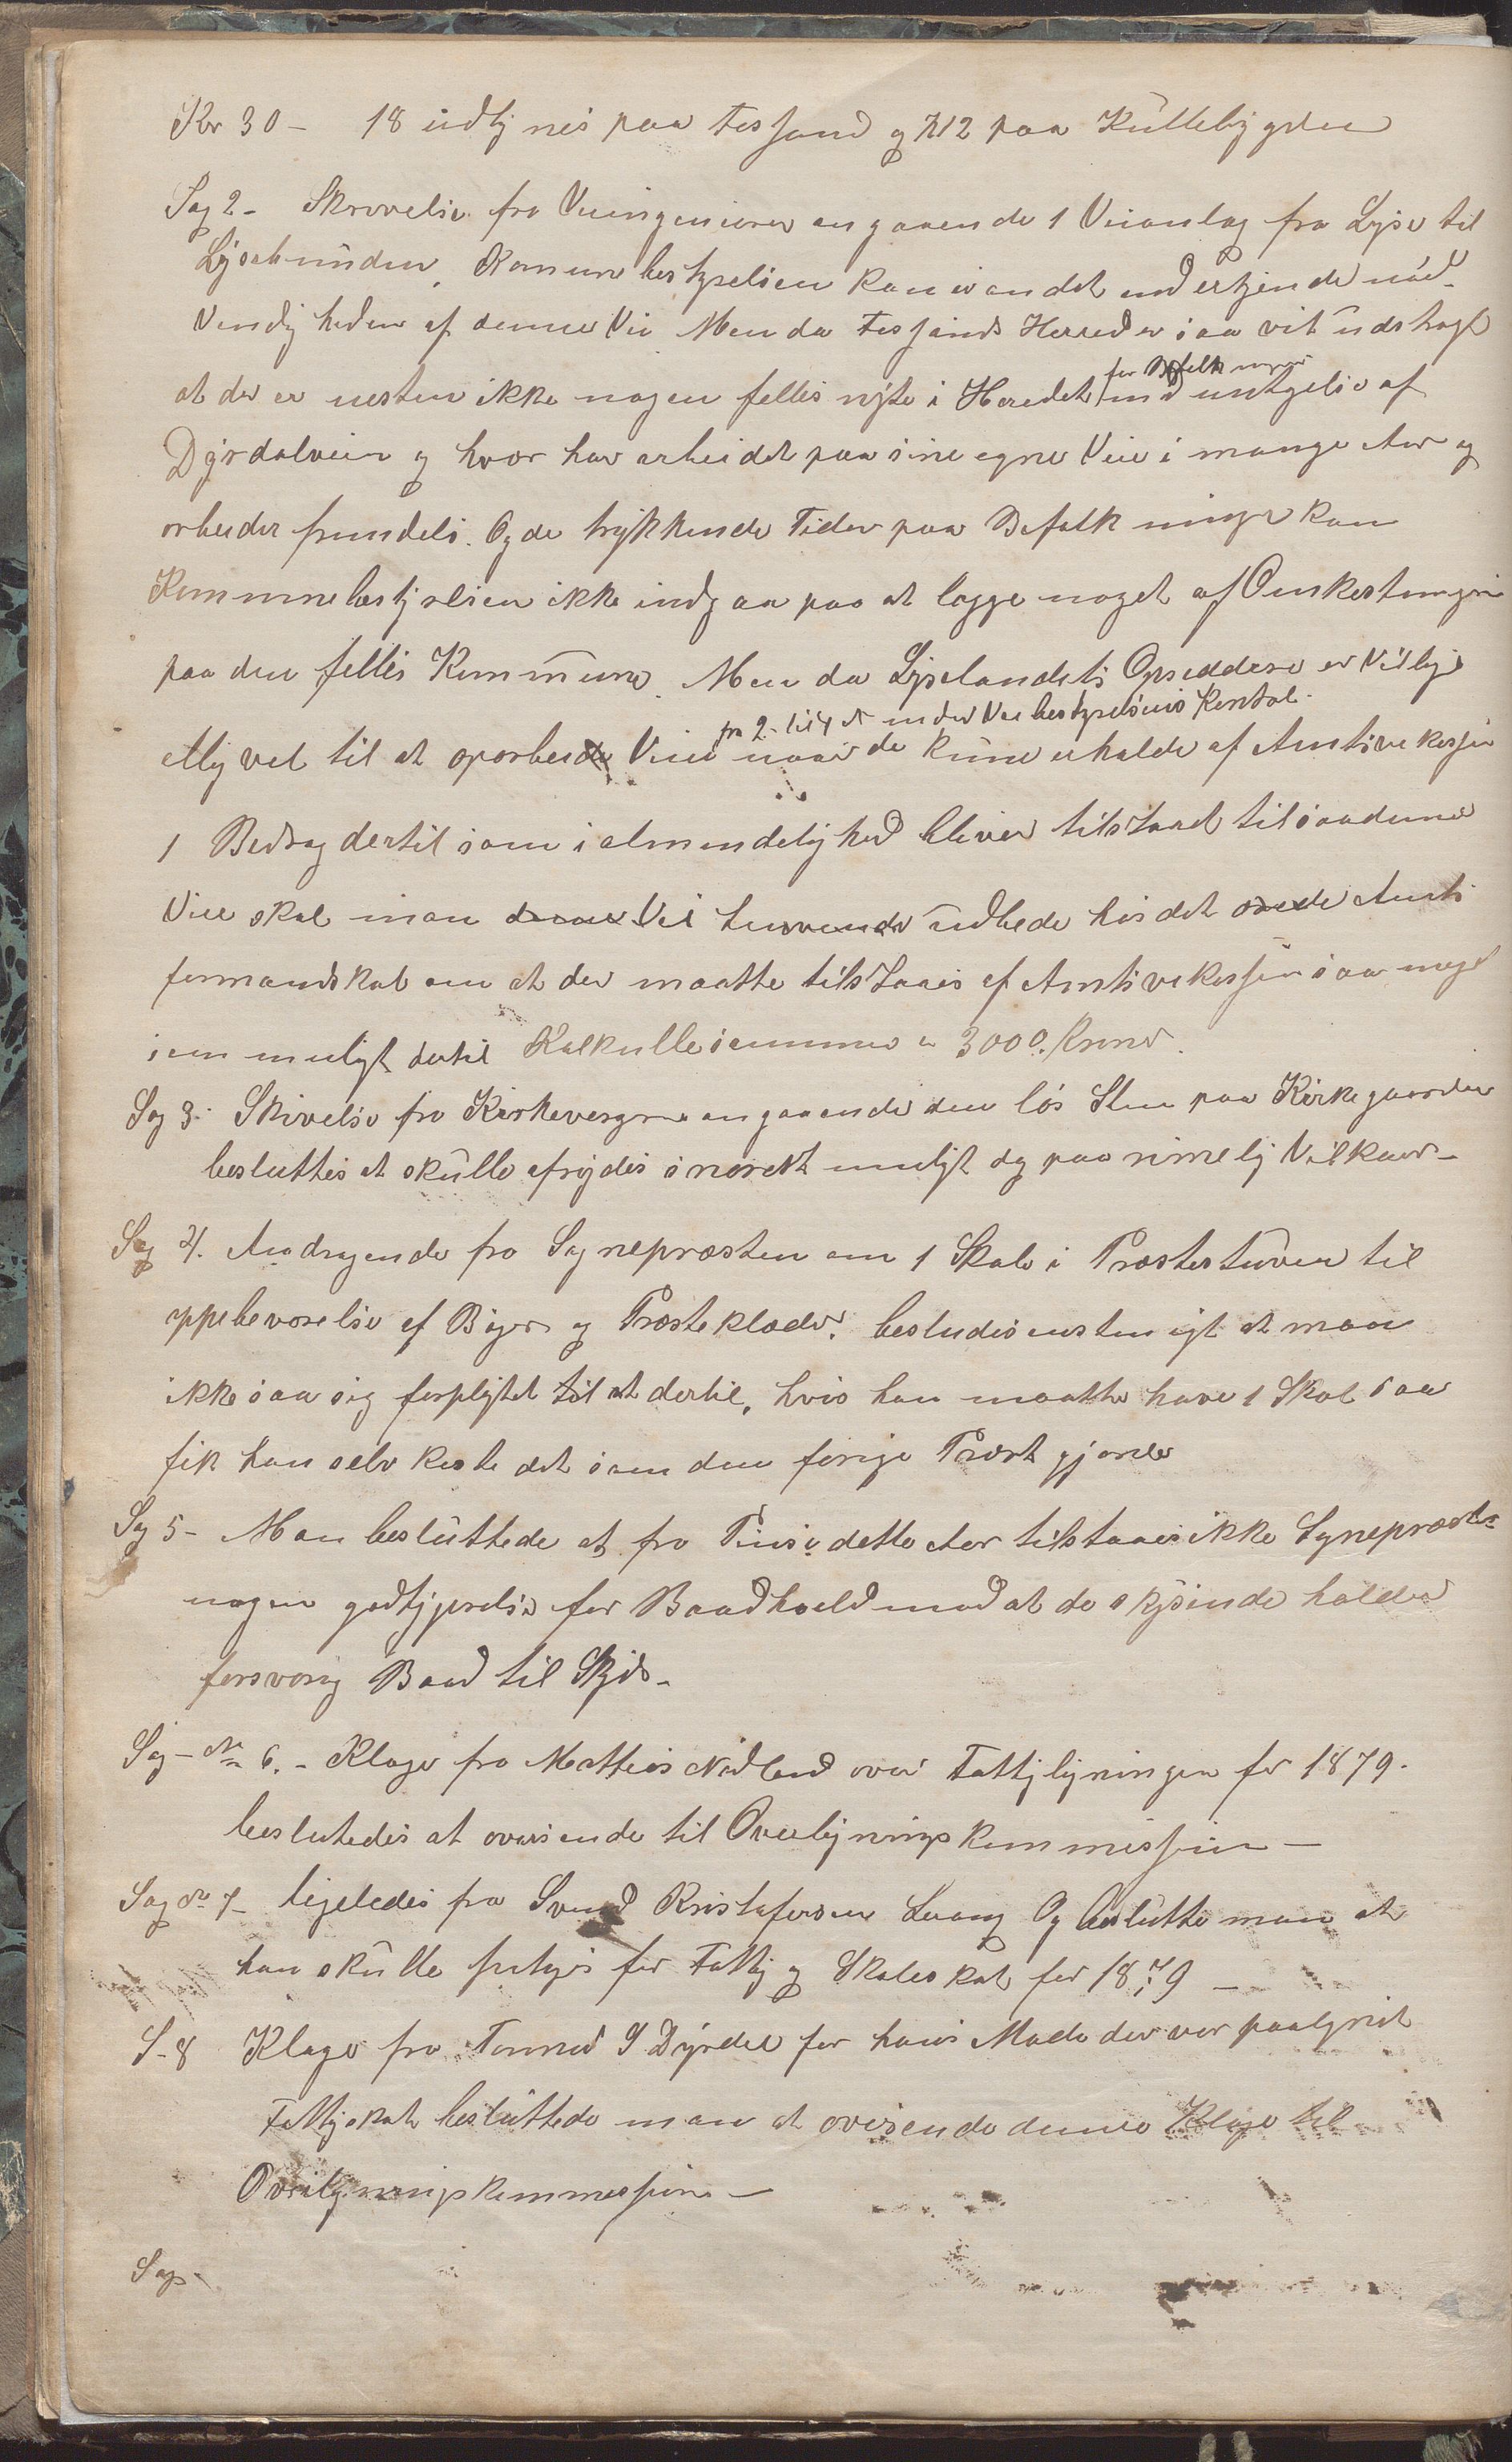 Kr 30 - 18 udlynes paa Fossand og K 12 paa Küllebygden
Sag 2 - Skrovelse fra Veiingeniøren angaaende 1 Veianlag fra Lyse til
Lÿsebunden, Komunebestyrelsen kan ei andet end erkjende nød-
vendigheden af denne Vei Men da Fossands Herred er saa vit udstragt
at der er nesten ikke nogen felles nyte i Heredet for Befolkningen med untgelse af
Dÿrdalveien og hver har arbeidet paa sine egne Veie i mange Aar og
arbeider fremdeles. Og de trykkende Tider paa Befolkningen kan
Kommunebestyrelsen ikke indgaa paa at lægge noget af Omkostningen
paa den felles Kommune. Men da Lyselandets Opsiddere er Vilige
alligvel til at oparbeide Veien fra 2 til 4 under Veibestyrelsens Kontrol naar de kunne erholde af Amtsvekassen
1 Bedrag dertil som i almendelighed bliver tilstaaet til saadanne
Veie skal man denne Vei henvende udbede hos det ærede Amts
formandskab om at der maatte tilstaaes af Amtsvekassen saa meget
som muligt dertil Kalkullesummen er 3000 Kroner.
Sag 3. Skrivelse fra Kirkevergerne angaaende den løs Sten paa Kirkegaarden
besluttes at skulle afrydes snarest muligt og paa rimelig Vilkaar -
Sag 4. Andragende fra Sognepræsten om 1 Skab i Præstestuen til
oppebevarelse af Bøger og Præsteklæder. besludes enstemigt at man
ikke saa sig forpligtet til at dertil, hvis han maatte have 1 Skab saa
fik han selv koste det som den forige Præst gjorde
Sag 5 - Man besluttede at fra Pinse dette Aar tilstaaes ikke Sognepræsten
nogen godtgjørelse for Baadhold mod at de skjsende holder
forsvarig Baad til Skjds -
Sag - No 6. - Klage fra Mattias Nødland over Fattiglyningen for 1879.
beslutedes at oversende til Overlignings kommissjon -
Sag No 7 - ligeledes fra Svend Kristofersen Levang Og beslutte man at
han skulle fritages for Fattig og Skoleskat for 1879 -
S - 8 Klage fra Tønnes S Dÿrdal for hans Mode der var paalignet
Fattigskat besluttede man at oversende denne Klage til
Overligningskommissjon -
Sag -